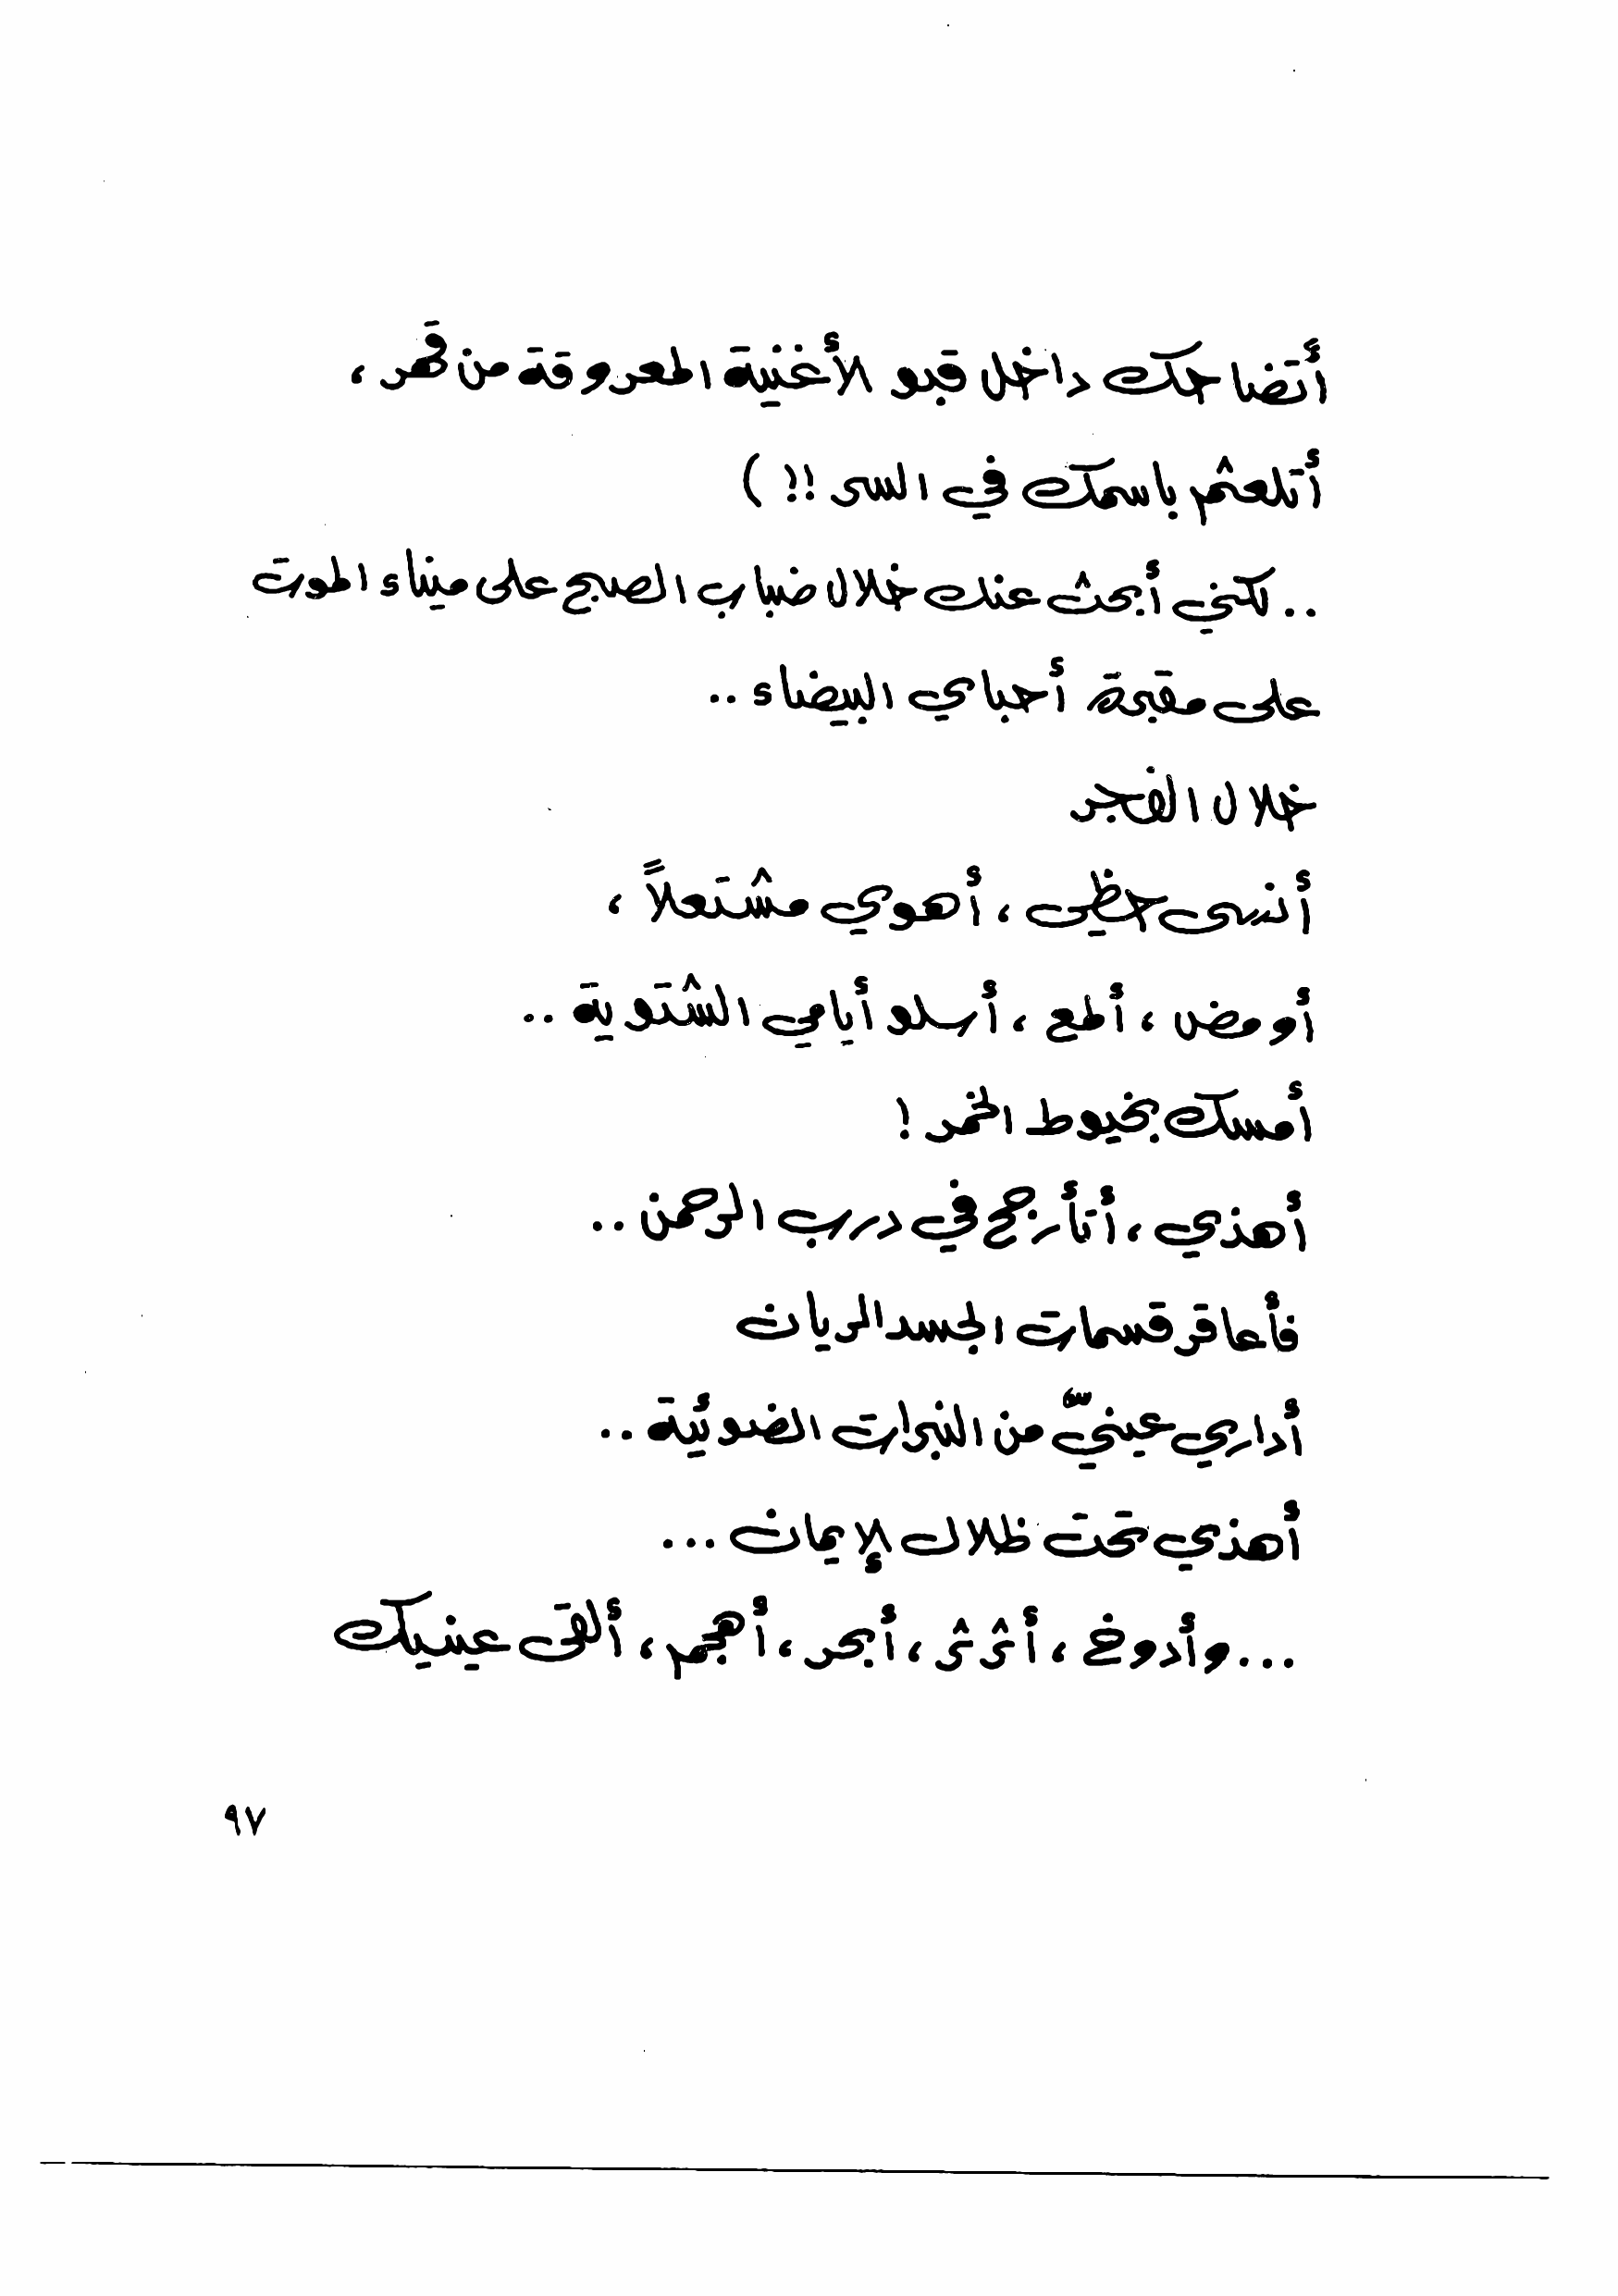 أتضاحك داخل قبو الأغنية المعروقة من قهر ،
أتلعثم باسمك في السر !! )
.. لكني أبحث عنك خلال ضباب الصبح على ميناء الموت
على مقبرة أحبابي البيضاء ..
خلال الفجر
أنسى حظي ، أهوي مشتعلاً ،
أومض ، ألمع ، أسلو أيامي الشتوية ..
أمسك بخيوط الخمر !
أهذي ، أتأرجح في درب الرحمن ..
فأعاقر قسمات الجسد الريان
أداري عينيّ من النبرات الضوئية ..
أهذي تحت ظلال الإيمان ...
... وأدوخ ، أثرثر ، أبحر ، أهجم ، ألقى عينيك
٩٧